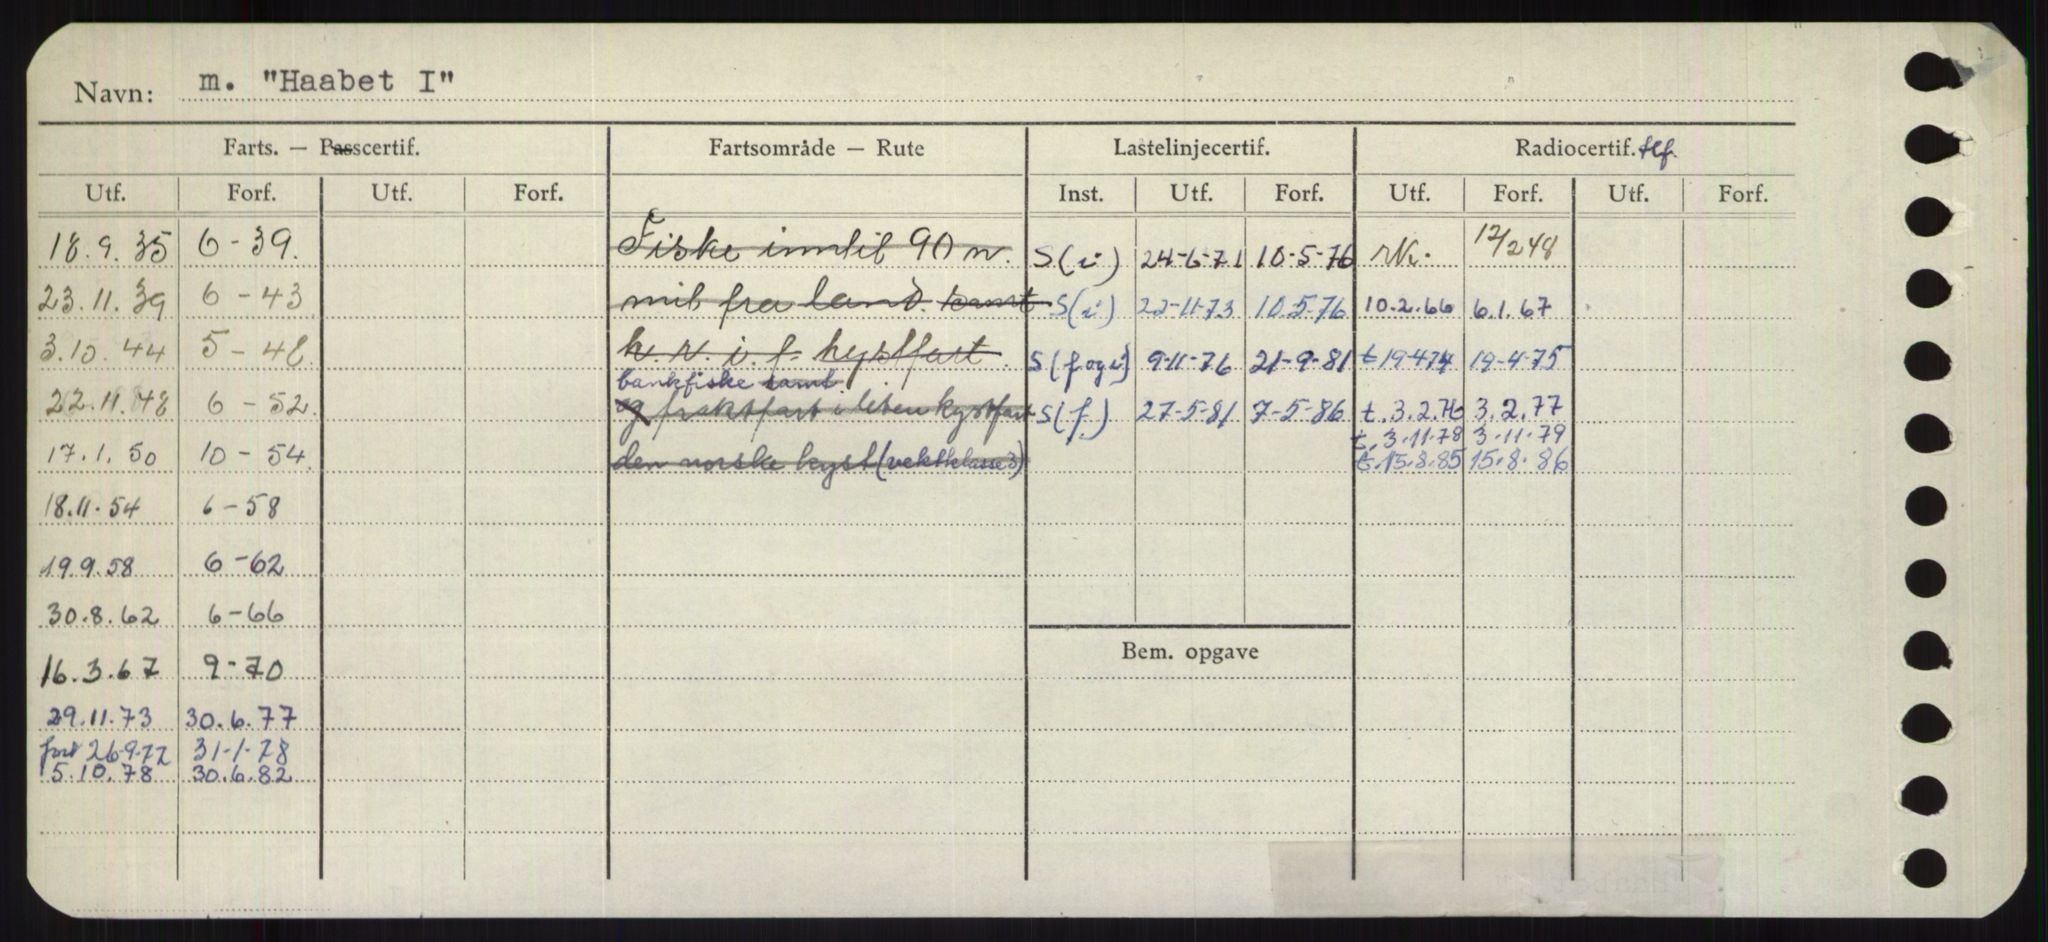 Navn: m. "Haabet I"
Farts. — Passcertif. Fartsområde — Rute Lastelinjecertif. Radiocertif. tlf.
Utf. Forf. Utf. Forf. Inst. Utf. Forf. Utf. Forf. Utf. Forf.
18.9.35 6-39. Fiske inntil 90 n. S(i) 24-6-71 10-5-76 12/2 48
23.11.39 6-43 mil fra land. samt S(i) 22-11-73 10.5-76 10.2.66 6.1.67
3.10.44 5-48. k.v.i.f. kystfart. S(f og i) 9-11-76 21-9-81 t 19-4-74 19-4-75
bankfiske samt
22.11.48 6-52. og fraktfart i liten kystfart S(f.) 27-5-81 7-5-86 t. 3.2.76 3.2.77
t. 3.11.78 3.11.79
17.1.50 10-54. den norske kyst (vektklasse 3) t. 15.8.85 15.8.86
18.11.54 6-58
19.9.58 6-62
30.8.62 6-66
16.3.67 9-70 Bem. opgave
29.11.73 30.6.77
26-9-77 31-1-78
5.10.78 30.6.82